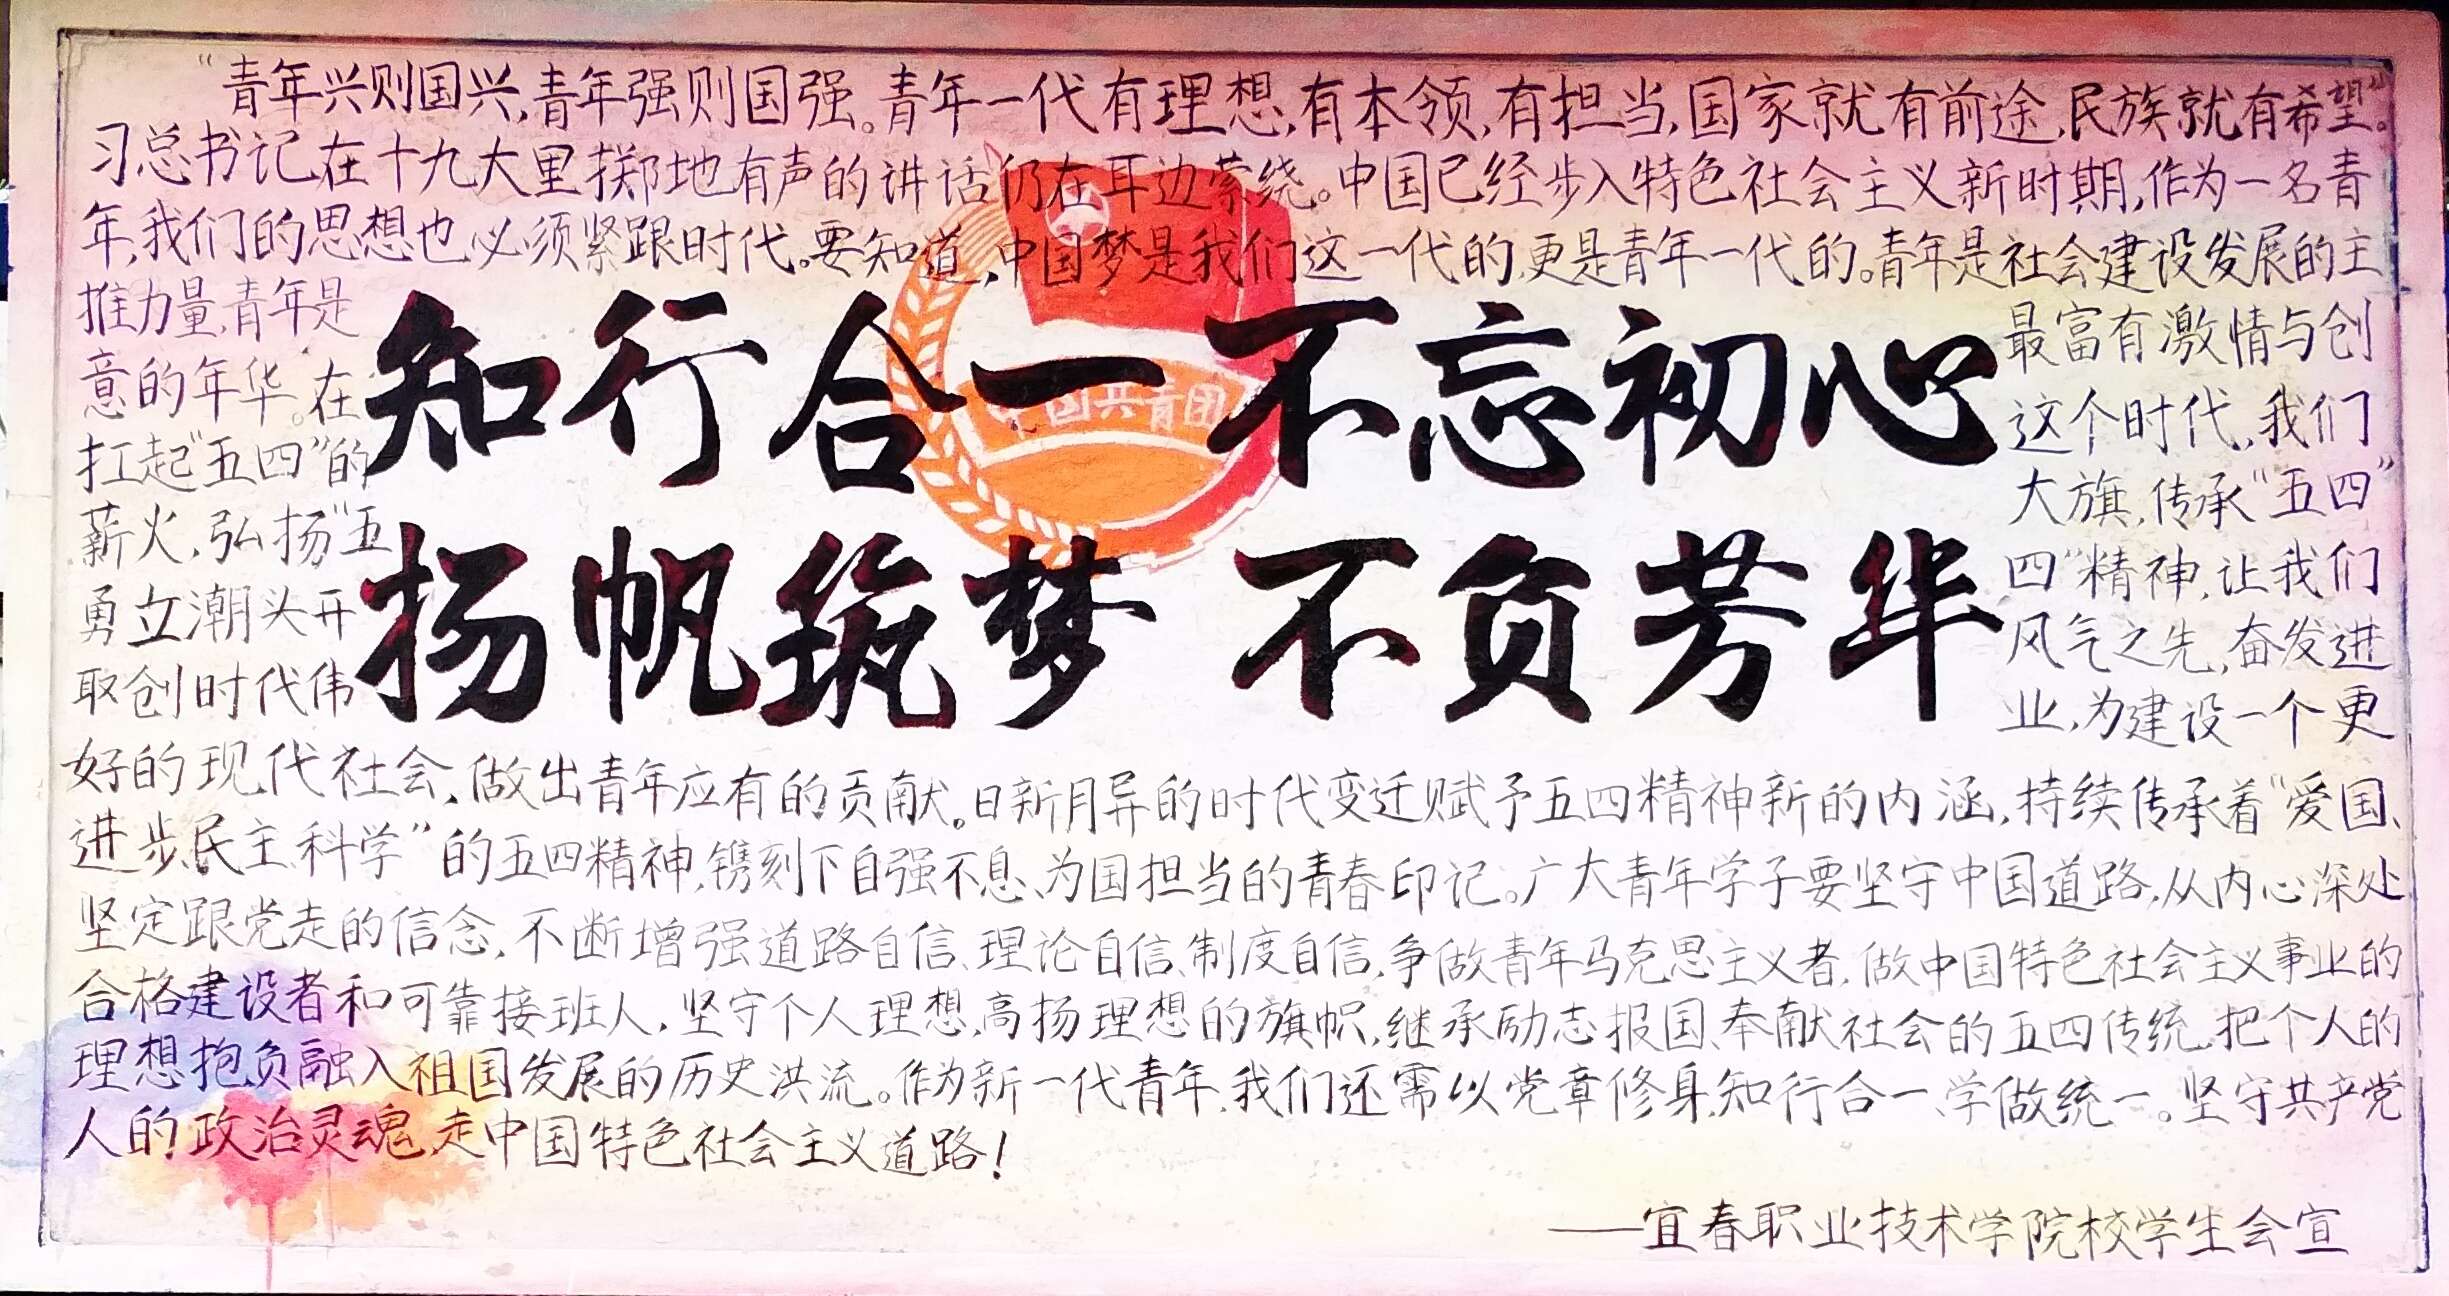 “青年兴则国兴,青年强则国强。青年一代有理想,有本领,有担当,国家就有前途,民族就有希望”。
习总书记在十九大里掷地有声的讲话仍在耳边萦绕。中国已经步入特色社会主义新时期,作为一名青
年,我们的思想也必须紧跟时代。要知道,中国梦是我们这一代的,更是青年一代的。青年是社会建设发展的主
推力量,青年是 最富有激情与创
意的年华。在 这个时代,我们
扛起“五四”的 大旗,传承“五四”
薪火,弘扬“五 四”精神,让我们
勇立潮头开 风气之先,奋发进
取创时代伟 业,为建设一个更
知行合一 不忘初心
扬帆筑梦 不负芳华
中国共青团
好的现代社会,做出青年应有的贡献。日新月异的时代变迁赋予五四精神新的内涵,持续传承着“爱国、
进步、民主、科学”的五四精神,镌刻下自强不息、为国担当的青春印记。广大青年学子要坚守中国道路,从内心深处
坚定跟党走的信念,不断增强道路自信、理论自信、制度自信,争做青年马克思主义者,做中国特色社会主义事业的
合格建设者和可靠接班人,坚守个人理想,高扬理想的旗帜,继承励志报国、奉献社会的五四传统,把个人的
理想抱负融入祖国发展的历史洪流。作为新一代青年,我们还需以党章修身,知行合一、学做统一。坚守共产党
人的政治灵魂,走中国特色社会主义道路!
——宜春职业技术学院校学生会宣